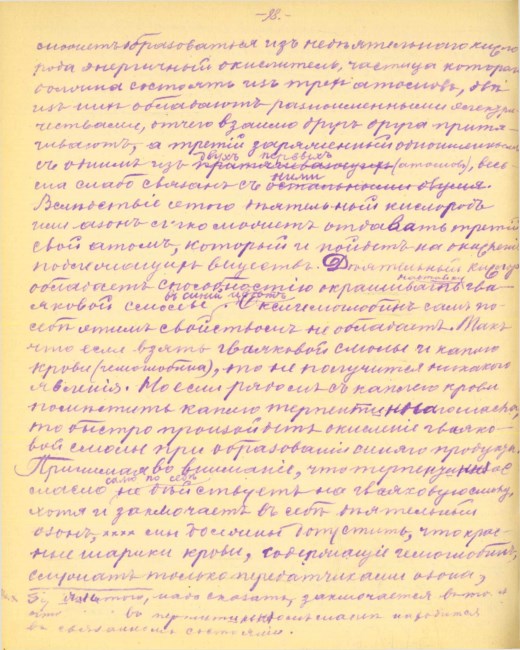 -28.-
сможетъ образоваться изъ недѣятельнаго кисло
рода энергичный окислитель, частица которая
должна состоять изъ трехъ атомовъ, двѣ
изъ нихъ обладаютъ разноименными электри-
чествами, отчего взаимно другъ друга притя-
гиваютъ, а третій заряженный одноименно
съ однимъ изъ двухъ первыхъ (атомовъ), весь-
ма слабо связанъ съ ними остальными двумя.
Вслѣдствіе этого дѣятельный кислородъ
или озонъ легко можетъ отдавать третій
свой атомъ, который и пойдетъ на окисленіе
подлежащихъ веществъ. Дѣятельный кислор.
обладаетъ способностію окрашивать настойку гва-
яковой смолы въ синій цвѣтъ. Оксигемоглобинъ самъ по
себѣ этимъ свойствомъ не обладаетъ. Такъ
что если взять гваяковой смолы и каплю
крови (гемоглобина), то не получится никакого
явленія. Но если рядомъ съ каплею крови
помѣстить каплю терпентиннаго масла,
то быстро произойдетъ окисленіе гваяко-
вой смолы при образованіи синяго продукта.
Принимая во вниманіе, что терпентинное
масло само по себѣ не дѣйствуетъ на гваяковую смолу,
хотя и заключаетъ въ себѣ дѣятельный
озонъ, мы должны допустить, что крас-
ные шарики крови, содержащіе гемоглобинъ,
служатъ только передатчиками озона,
надо сказать, заключается въ томъ
что въ терпентинномъ маслѣ находится
въ связанномъ состояніи.